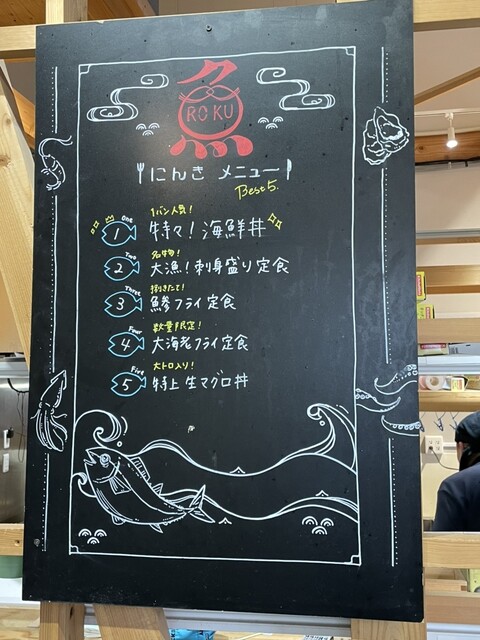 魚
RO KU
にんき メニュー
Best 5.
1バン人気!
One
1 特々!海鮮丼
名物!
Two
2 大漁!刺身盛り定食
捌きたて!
Three
3 鯵フライ定食
数量限定!
Four
4 大海老フライ定食
大トロ入り!
Five
5 特上 生マグロ丼